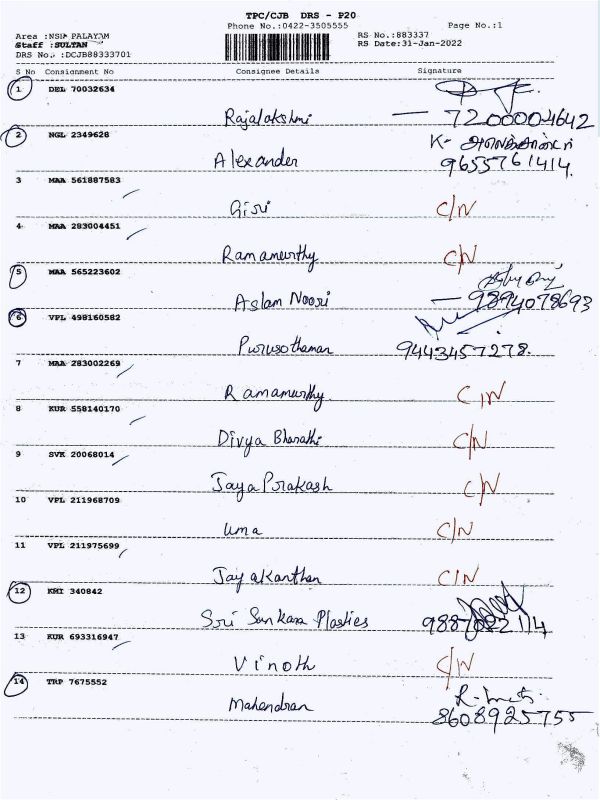 TPC/CJB DRS - P20
Phone No.:0422-3505555 Page No.:1
Area :NSR PALAYAM RS No.:883337
Staff :SULTAN RS Date:31-Jan-2022
DRS No. :DCJB88333701
S No Consignment No Consignee Details Signature
1 DEL 70032634
Rajalakshmi — 7200004642
2 NGL 2349628 K-
Alexander 9655761414.
3 MAA 561887583
Giri C/N
4 MAA 283004451
Ramamurthy C/N
5 MAA 565223602
Aslam Noori — 9894078693
6 VPL 498160582
Purusothaman 9443457278.
7 MAA 283002269
Ramamurthy C/N
8 KUR 558140170
Divya Bharathi C/N
9 SVK 20068014
Jaya Prakash C/N
10 VPL 211968709
Uma C/N
11 VPL 211975699
Jayakanthan C/N
12 KMI 340842
Sri Sankara Plastics
13 KUR 693316947
Vinoth C/N
14 TRP 7675552
Mahendran 8608925755